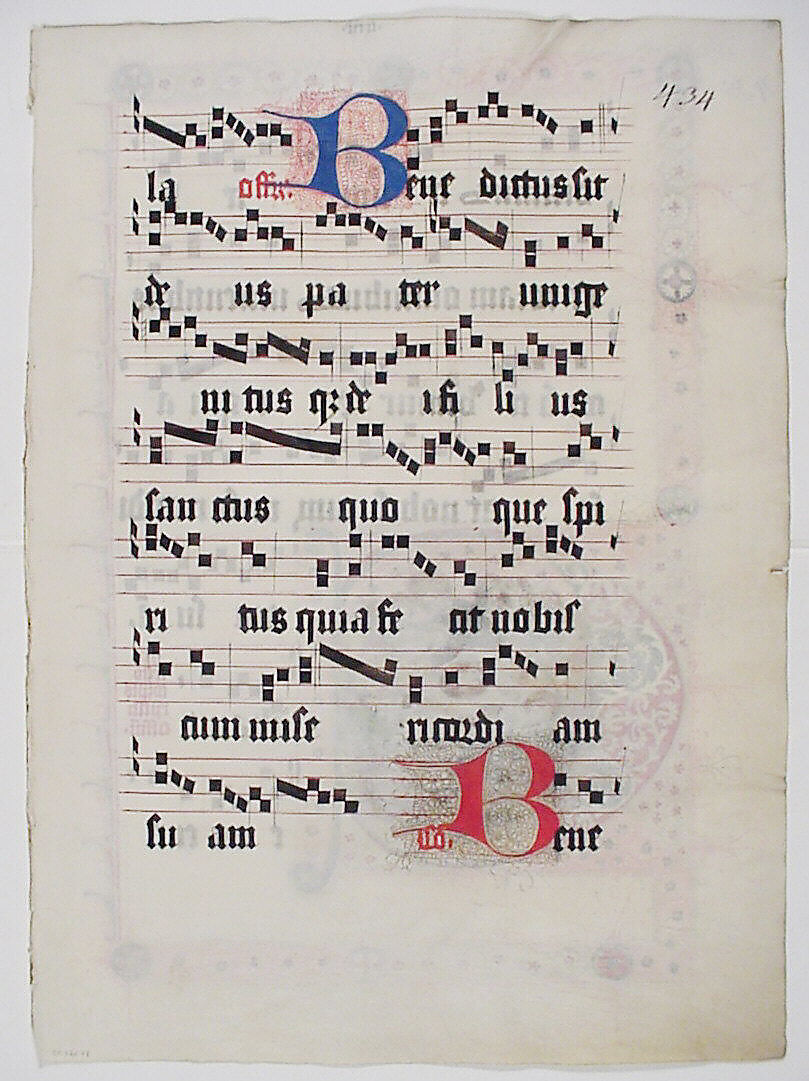 434
la offr. Bene dictus sit
de us pa ter unige
ni tus qꝫ de i fi li us
san ctus quo que spi
ri tus quia fe cit nobis
cum mise ricordi am
su am Bene